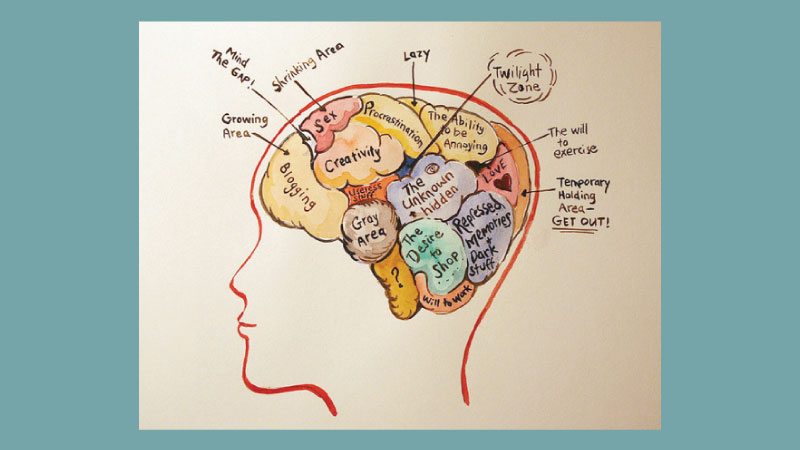 Mind
The GAP!
Shrinking Area
Lazy
Twilight
Zone
Growing
Area
Sex
Procrastination
The Ability
to be
Annoying
The will
to
exercise
Creativity
Blogging
Useless
stuff
The
Unknown
hidden
LOVE
Temporary
Holding
Area—
GET OUT!
Gray
Area
The
Desire
to
Shop
Repressed
Memories
+
Dark
stuff
?
Will to Work